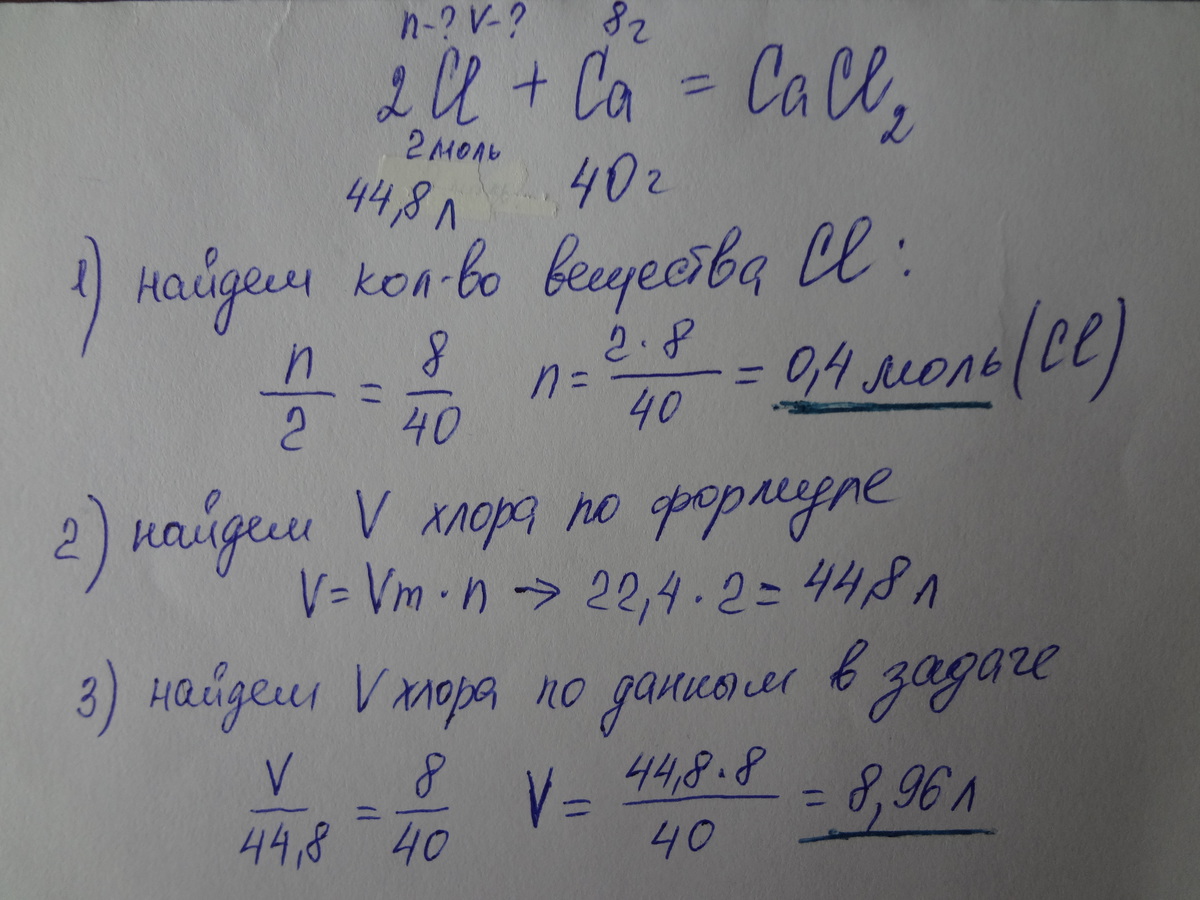 n-? V-? 8г
2Cl + Ca = CaCl₂
2моль
44,8 л 40 г
1) найдем кол-во вещества Cl:
n/2 = 8/40 n = 2·8/40 = 0,4 моль (Cl)
2) найдем V хлора по формуле
V = Vm · n → 22,4 · 2 = 44,8 л
3) найдем V хлора по данным в задаче
V/44,8 = 8/40 V = 44,8·8/40 = 8,96 л